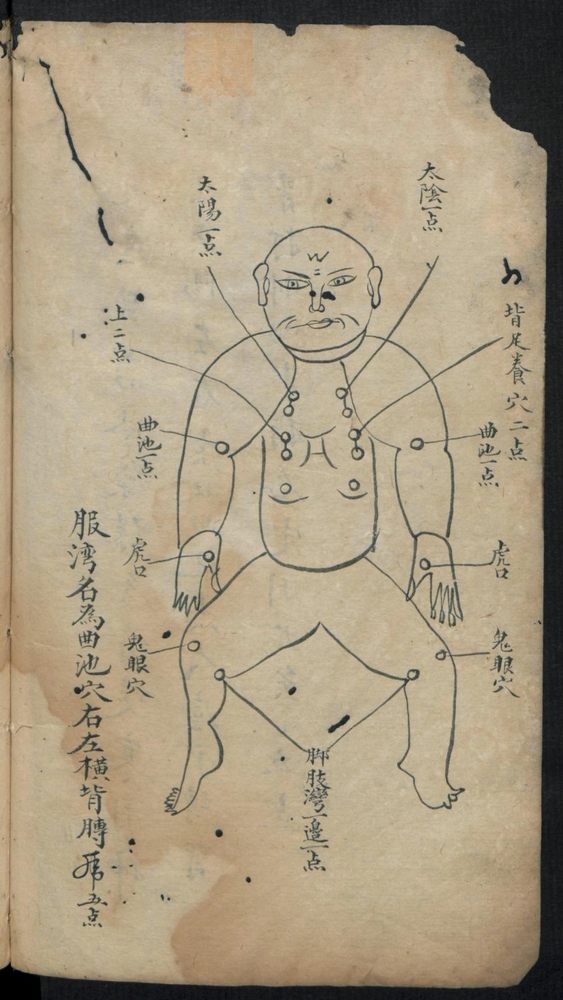 太陰一点
太陽一点
上二点
背足養穴二点
曲池一点
曲池一点
虎口
虎口
鬼眼穴
鬼眼穴
脚肢灣一邉一点
服湾名為曲池穴右左横背膊 五点